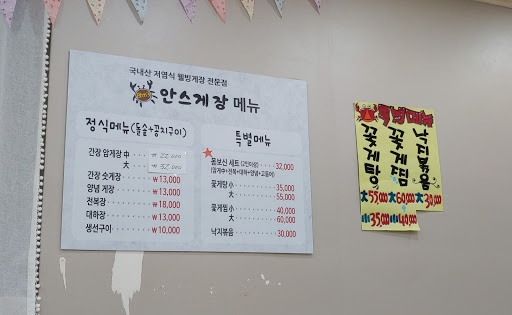 국내산 저염식 웰빙게장 전문점
안스게장 메뉴
정식메뉴(돌솥+꽁치구이)
간장 암게장 中
大
간장 숫게장 ₩13,000
양념 게장 ₩13,000
전복장 ₩18,000
대하장 ₩13,000
생선구이 ₩10,000
특별메뉴
몸보신 세트 (2인이상) 32,000
(암게中+전복+대하+양념+고등어)
꽃게탕 小 35,000
大 55,000
꽃게찜 小 40,000
大 60,000
낙지볶음 30,000
특별메뉴
꽃게탕
大55,000
小35,000
꽃게찜
大60,000
小40,000
낙지볶음
大30,000